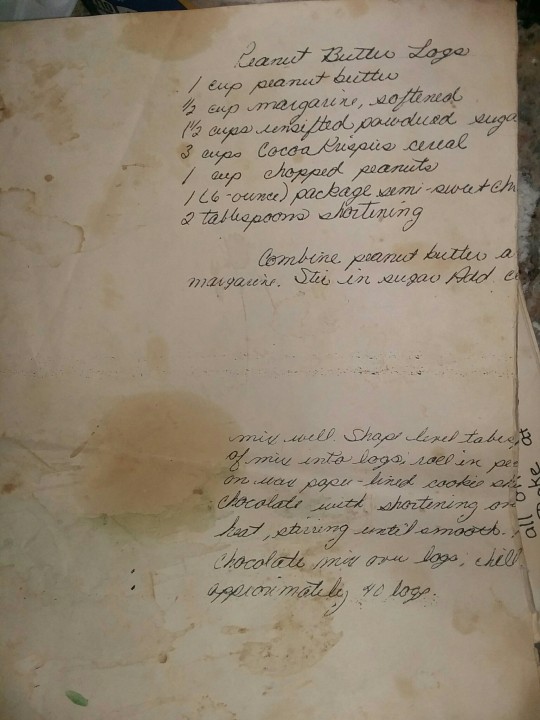 Peanut Butter Logs
1 cup peanut butter
1/2 cup margarine, softened
1 1/2 cups unsifted powdered suga
3 cups Cocoa Krispies cereal
1 cup chopped peanuts
1 (6-ounce) package semi-sweet ch
2 tablespoons shortening
Combine peanut butter a
margarine. Stir in sugar Add c
mix well. Shape level tables
of mix into logs; roll in pe
on wax paper-lined cookie sh
chocolate with shortening on
heat, stirring until smooth.
chocolate mix over logs; chill
approximately 40 logs.
all
Bake at